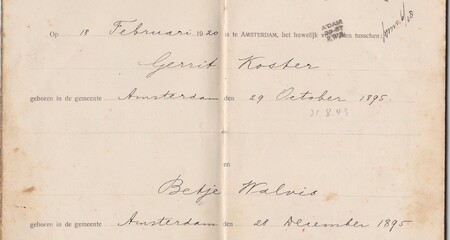 Op 18 Februari 1920 is te AMSTERDAM, het huwelijk tusschen:
Gerrit Koster
geboren in de gemeente Amsterdam den 29 October 1895.
31.8.43
en
Betje Walvis
geboren in de gemeente Amsterdam den 28 December 1895